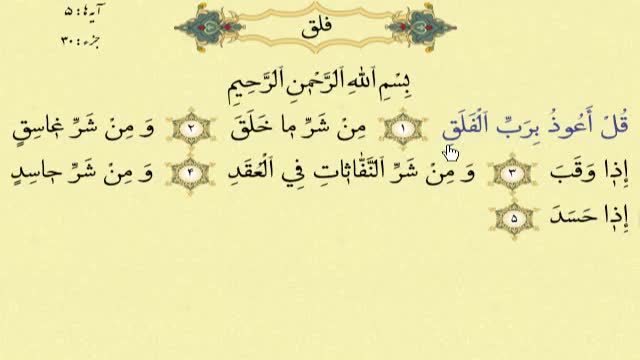 آیه‌ها: ۵
جزء: ۳۰
فلق
بِسْمِ اَللّٰهِ اَلرَّحْمٰنِ اَلرَّحِيمِ
قُلْ أَعُوذُ بِرَبِّ اَلْفَلَقِ ۱ مِنْ شَرِّ مٰا خَلَقَ ۲ وَ مِنْ شَرِّ غٰاسِقٍ
إِذٰا وَقَبَ ۳ وَ مِنْ شَرِّ اَلنَّفّٰاثٰاتِ فِي اَلْعُقَدِ ۴ وَ مِنْ شَرِّ حٰاسِدٍ
إِذٰا حَسَدَ ۵